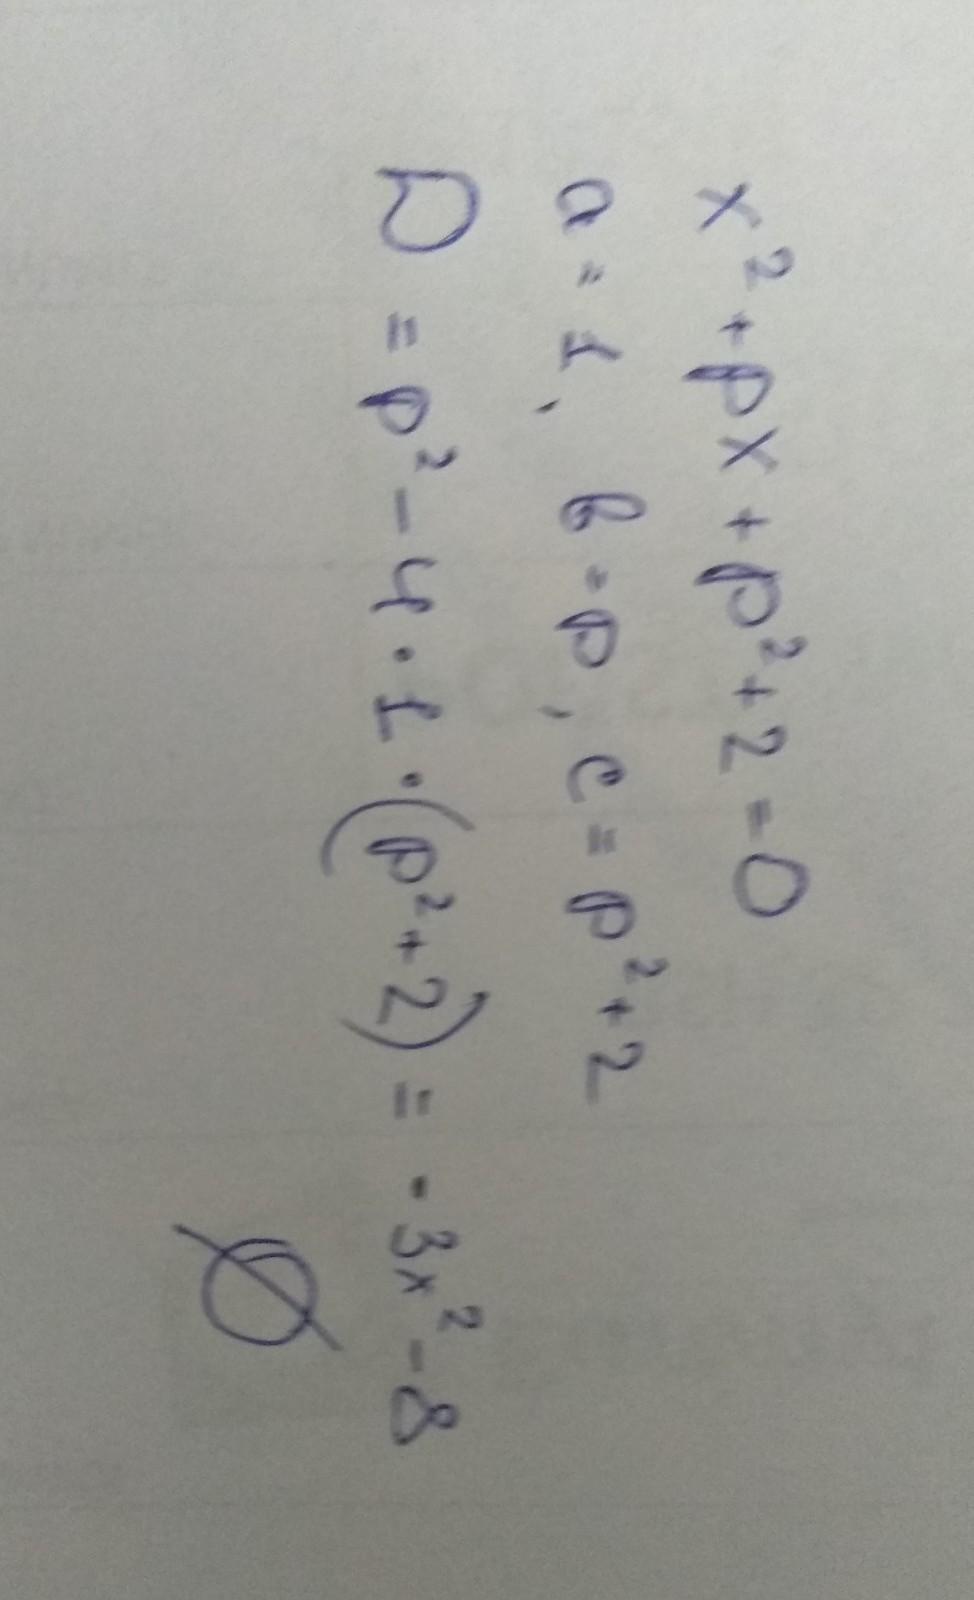 x² + px + p² + 2 = 0
a = 1, b = p, c = p² + 2
D = p² - 4 · 1 · (p² + 2) = - 3x² - 8
∅